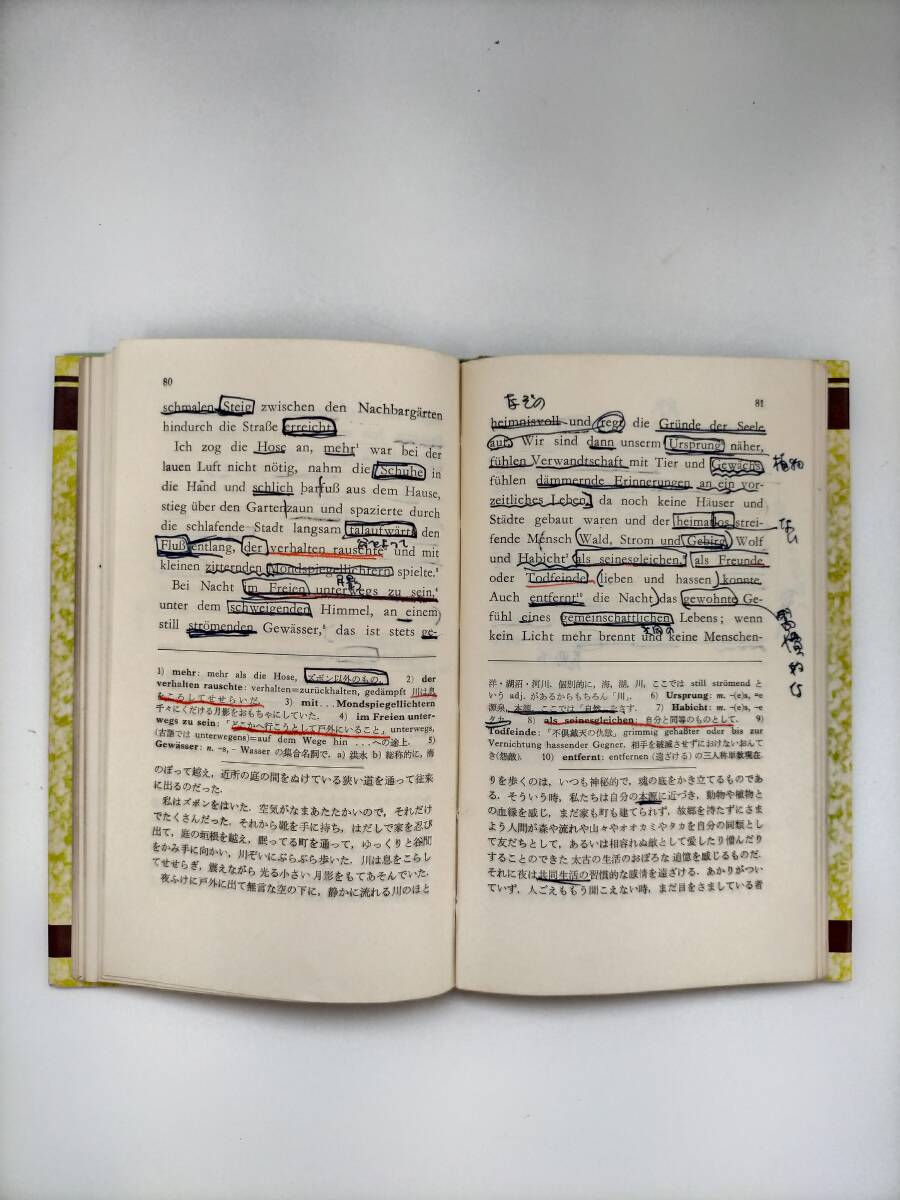 80
schmalen Steig zwischen den Nachbargärten
hindurch die Straße erreicht.
Ich zog die Hose an, mehr¹ war bei der
lauen Luft nicht nötig, nahm die Schuhe in
die Hand und schlich barfuß aus dem Hause,
stieg über den Gartenzaun und spazierte durch
die schlafende Stadt langsam talaufwärts den
Fluß entlang, der verhalten rauschte² und mit
kleinen zitternden Mondspiegellichtern spielte.³
月影
Bei Nacht im Freien unterwegs zu sein,⁴
unter dem schweigenden Himmel, an einem
still strömenden Gewässer,⁵ das ist stets ge-
1) mehr: mehr als die Hose, ズボン以外のもの. 2) der
verhalten rauschte: verhalten=zurückhalten, gedämpft 川は息
をころしてせせらいだ. 3) mit...Mondspiegellichtern
千々にくだける月影をおもちゃにしていた. 4) im Freien unter-
wegs zu sein: 「どこかへ行こうとして戸外にいること」 unterwegs,
(古語では unterwegens)=auf dem Wege hin ...への途上. 5)
Gewässer: n. -s, - Wasser の集合名詞で, a) 洪水 b) 総称的に, 海
のぼって越え, 近所の庭の間をぬけている狭い道を通って往来
に出るのだった.
私はズボンをはいた. 空気がなまあたたかいので, それだけ
でたくさんだった. それから靴を手に持ち, はだしで家を忍び
出て, 庭の垣根を越え, 眠ってる町を通って, ゆっくりと谷間
をかみ手に向かい, 川ぞいにぶらぶら歩いた. 川は息をこらし
てせせらぎ, 震えながら 光る小さい 月影をもてあそんでいた.
夜ふけに戸外に出て無言な空の下に, 静かに流れる川のほと
81
なぞの
heimnisvoll und regt die Gründe der Seele
auf. Wir sind dann unserm Ursprung näher,
fühlen Verwandtschaft mit Tier und Gewächs,
植物
fühlen dämmernde Erinnerungen an ein vor-
zeitliches Leben, da noch keine Häuser und
Städte gebaut waren und der heimatlos strei-
ない
fende Mensch Wald, Strom und Gebirg, Wolf
und Habicht⁷ als seinesgleichen,⁸ als Freunde
oder Todfeinde⁹ lieben und hassen konnte.
Auch entfernt¹⁰ die Nacht das gewohnte Ge-
fühl eines gemeinschaftlichen Lebens; wenn
共同の
kein Licht mehr brennt und keine Menschen-
洋・湖沼・河川, 個別的に, 海, 湖, 川, ここでは still strömend と
いう adj. があるからもちろん「川」. 6) Ursprung: m. -(e)s, -e
源泉, 本源, ここでは「自然」をさす. 7) Habicht: m. -(e)s, -e
タカ. 8) als seinesgleichen: 自分と同等のものとして. 9)
Todfeinde: 「不倶戴天の仇敵」 grimmig gehaßter oder bis zur
Vernichtung hassender Gegner, 相手を破滅さずにおけないおんて
き(怨敵). 10) entfernt: entfernen (遠ざける) の三人称単数現在.
りを歩くのは, いつも神秘的で, 魂の底をかき立てるものであ
る. そういう時, 私たちは自分の本源に近づき, 動物や植物と
の血縁を感じ, まだ家も町も建てられず, 故郷を持たずにさま
よう人間が森や流れや山々やオオカミやタカを自分の同類とし
て友だちとして, あるいは相容れぬ敵として愛したり憎んだり
することのできた 太古の生活のおぼろな 追憶を感じるものだ.
それに夜は共同生活の習慣的な感情を遠ざける. あかりがつい
ていず, 人ごえももう聞こえない時, まだ目をさましている者